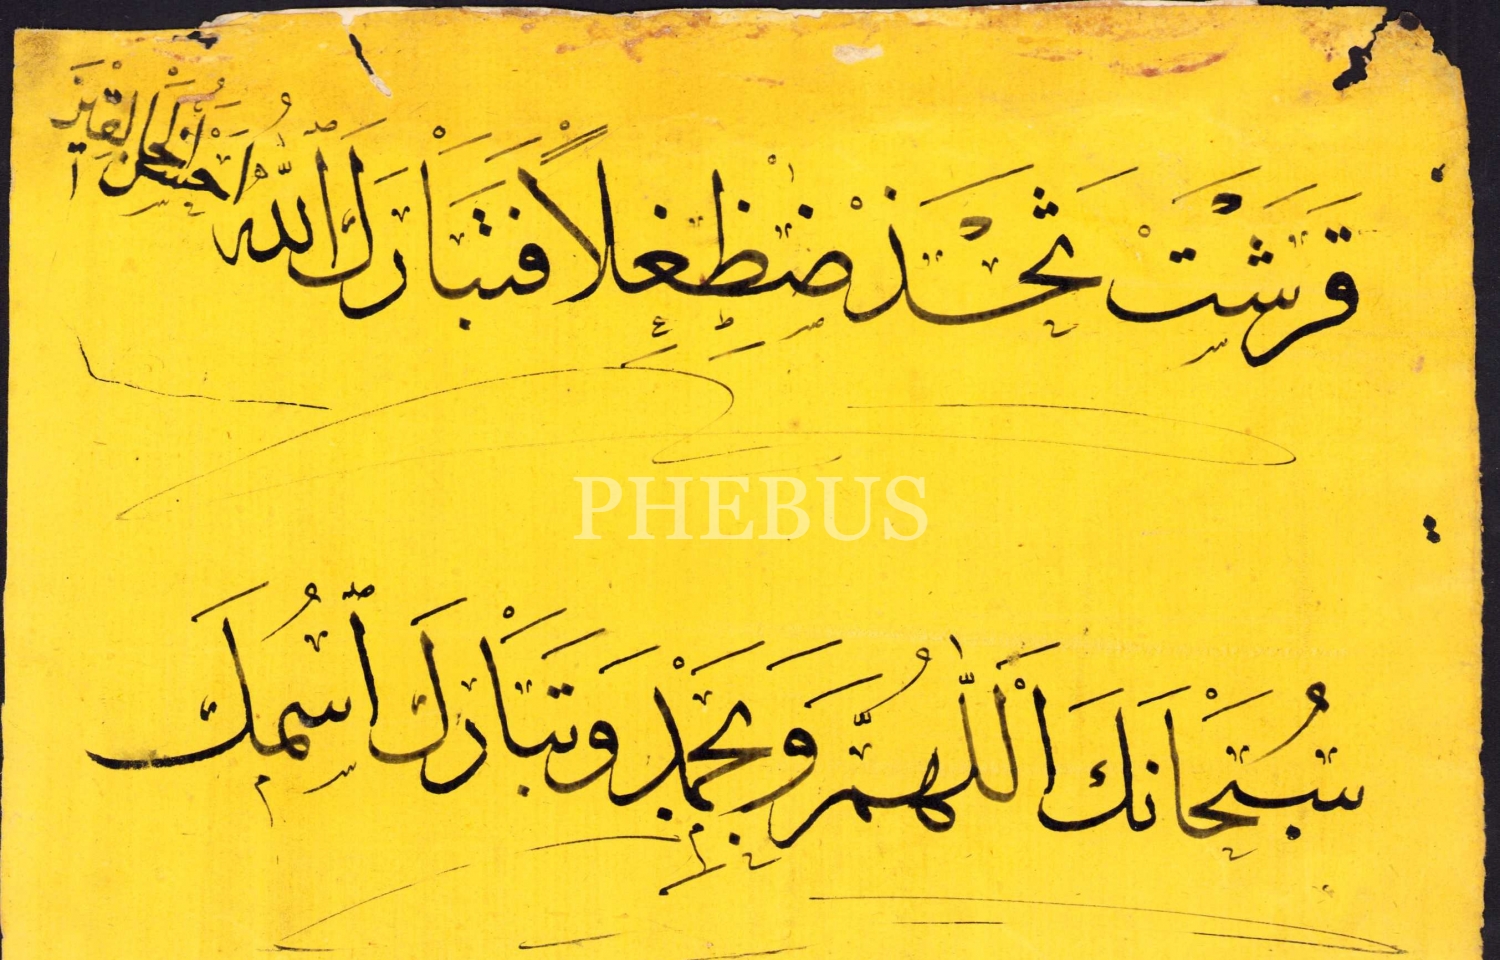 قَرَشَتْ ثَخَذْ ضَظِغٍلاً فَتَبَارَكَ اللّٰهُ اَحْسَنُ الْخَالِقِينَ
PHEBUS
سُبْحَانَكَ اَللّٰهُمَّ وَبِحَمْدِ وَتَبَارَكَ اسْمُكَ